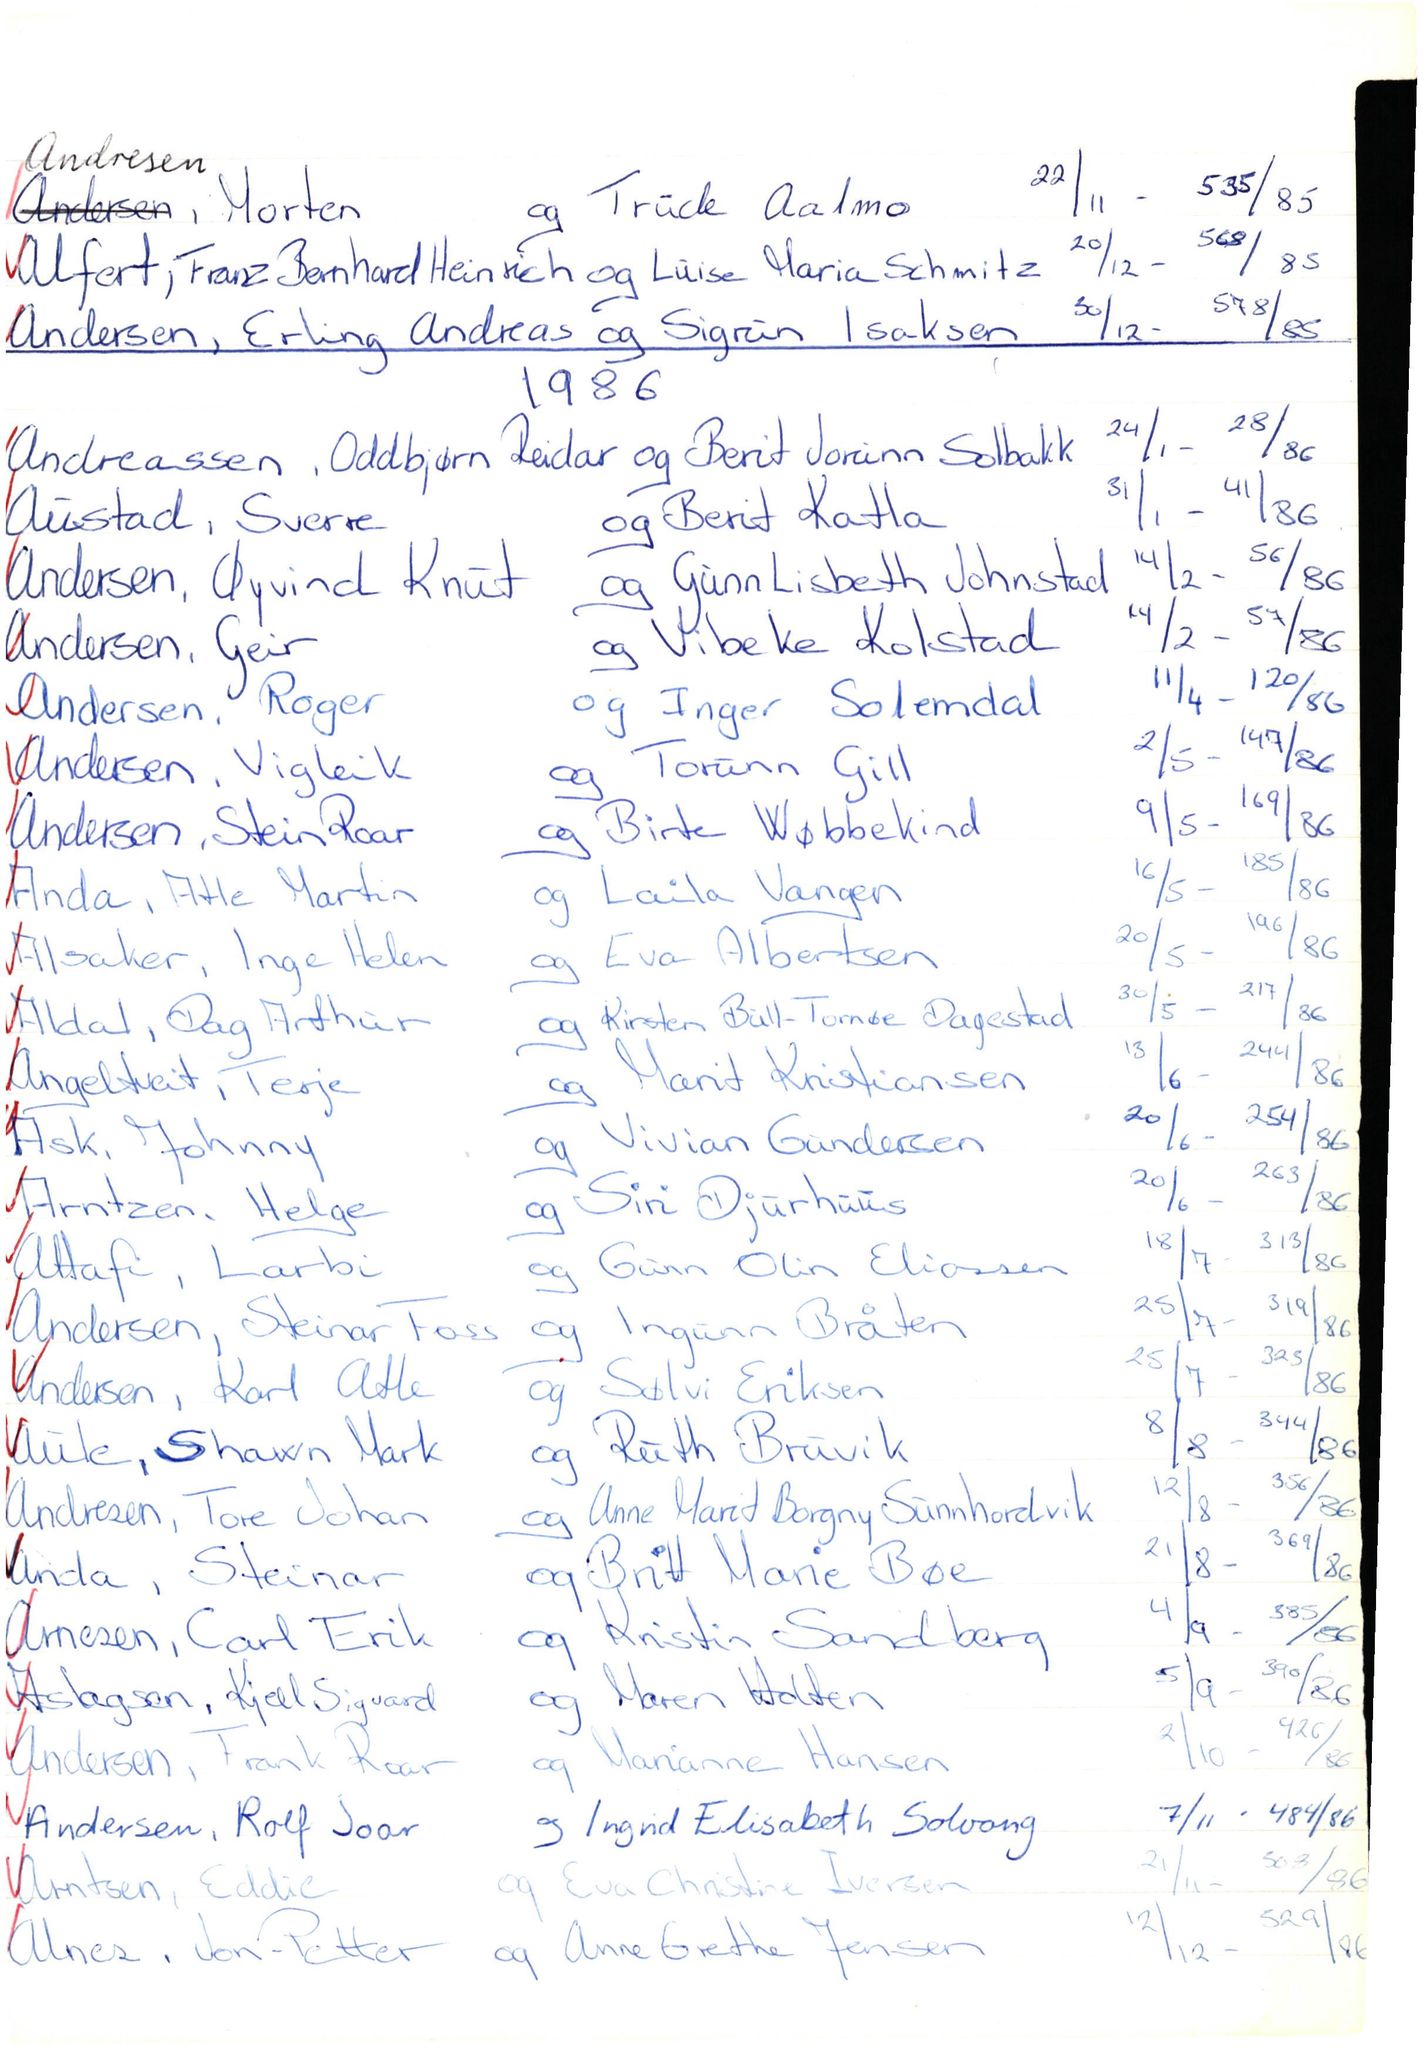 Andresen
Andersen, Morten og Trude Aalmo 22/11 - 535/85
Alfert, Franz Bernhard Heinrich og Luise Maria Schmitz 20/12 - 568/85
Andersen, Erling Andreas og Sigrun Isaksen 30/12 - 578/85
1986
Andreassen, Oddbjørn Reidar og Berit Jorunn Solbakk 24/1 - 28/86
Austad, Sverre og Berit Katla 31/1 - 41/86
Andersen, Øyvind Knut og Gunn Lisbeth Johnstad 14/2 - 56/86
Andersen, Geir og Vibeke Kolstad 14/2 - 57/86
Andersen, Roger og Inger Solemdal 11/4 - 120/86
Andersen, Vigleik og Torunn Gill 2/5 - 147/86
Andersen, Stein Roar og Birte Wøbbekind 9/5 - 169/86
Anda, Atle Martin og Laila Vangen 16/5 - 185/86
Alsaker, Inge Helen og Eva Albertsen 20/5 - 196/86
Aldal, Dag Arthur og Kirsten Bull-Tornøe Dagestad 30/5 - 217/86
Angeltveit, Terje og Marit Kristiansen 13/6 - 244/86
Ask, Johnny og Vivian Gundersen 20/6 - 254/86
Arntzen, Helge og Siri Djurhuus 20/6 - 263/86
Attafi, Larbi og Gunn Olin Eliassen 18/7 - 313/86
Andersen, Steinar Foss og Ingunn Bråten 25/7 - 319/86
Andersen, Karl Atle og Sølvi Eriksen 25/7 - 323/86
Aule, Shawn Mark og Ruth Bruvik 8/8 - 344/86
Andresen, Tore Johan og Anne Marit Borgny Sunnhordvik 12/8 - 356/86
Anda, Steinar og Britt Marie Bøe 21/8 - 369/86
Arnesen, Carl Erik og Kristin Sandberg 4/9 - 385/86
Aslagsen, Kjell Sigvard og Maren Holten 5/9 - 390/86
Andersen, Frank Roar og Marianne Hansen 2/10 - 426/86
Andersen, Rolf Joar og Ingrid Elisabeth Solvang 7/11 - 484/86
Arntsen, Eddie og Eva Christine Iversen 21/11 - 503/86
Alnes, Jon-Petter og Anne Grethe Jensen 12/12 - 529/86